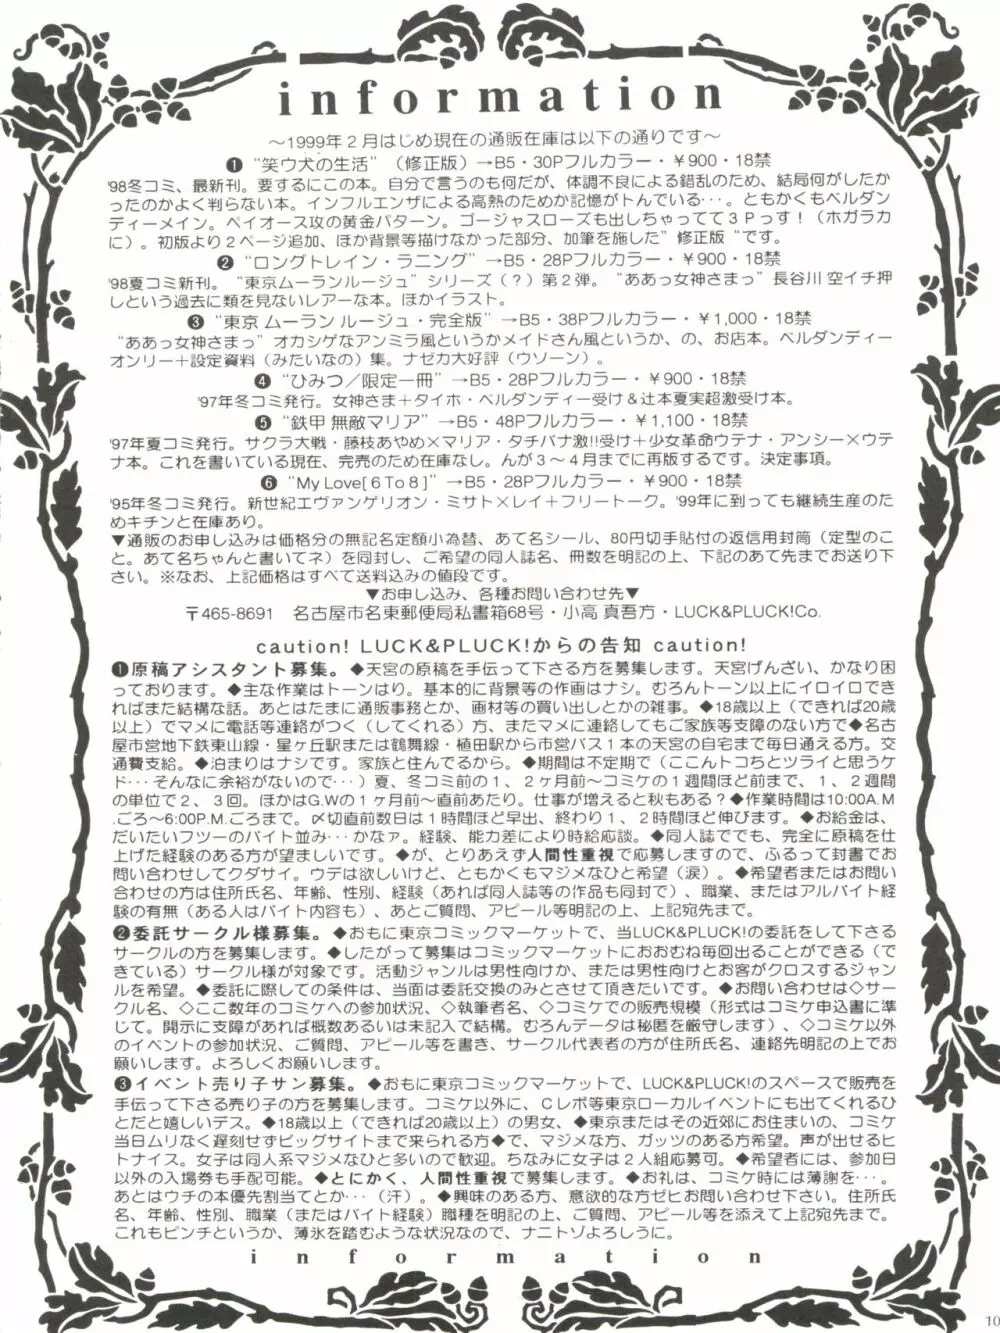 information
～1999年２月はじめ現在の通販在庫は以下の通りです～
❶ “笑ウ犬の生活” （修正版）→B5・30Pフルカラー・￥900・18禁
'98冬コミ、最新刊。要するにこの本。自分で言うのも何だが、体調不良による錯乱のため、結局何がしたか
ったのかよく判らない本。インフルエンザによる高熱のためか記憶がトんでいる…。ともかくもベルダン
ディーメイン。ペイオース攻の黄金パターン。ゴージャスローズも出しちゃってて３Ｐっす！（ホガラカ
に）。初版より２ページ追加、ほか背景等描けなかった部分、加筆を施した”修正版“です。
❷ “ロングトレイン・ラニング” →B5・28Pフルカラー・￥900・18禁
'98夏コミ新刊。“東京ムーランルージュ”シリーズ（？）第２弾。“ああっ女神さまっ”長谷川 空イチ押
しという過去に類を見ないレアーな本。ほかイラスト。
❸ “東京 ムーラン ルージュ・完全版” →B5・38Pフルカラー・￥1,000・18禁
“ああっ女神さまっ”オカシゲなアンミラ風というかメイドさん風というか、の、お店本。ベルダンディー
オンリー＋設定資料（みたいなの）集。ナゼカ大好評（ウソーン）。
❹ “ひみつ／限定一冊” →B5・28Pフルカラー・￥900・18禁
'97年冬コミ発行。女神さま＋タイホ・ベルダンディー受け＆辻本夏実超激受け本。
❺ “鉄甲 無敵マリア” →B5・48Pフルカラー・￥1,100・18禁
'97年夏コミ発行。サクラ大戦・藤枝あやめ×マリア・タチバナ激!!受け＋少女革命ウテナ・アンシー×ウテ
ナ本。これを書いている現在、完売のため在庫なし。んが３～４月までに再版するです。決定事項。
❻ “My Love[６To８]” →B5・28Pフルカラー・￥900・18禁
'95年冬コミ発行。新世紀エヴァンゲリオン・ミサト×レイ＋フリートーク。'99年に到っても継続生産のた
めキチンと在庫あり。
▼通販のお申し込みは価格分の無記名定額小為替、あて名シール、80円切手貼付の返信用封筒（定型のこ
と。あて名ちゃんと書いてネ）を同封し、ご希望の同人誌名、冊数を明記の上、下記のあて先までお送り下
さい。※なお、上記価格はすべて送料込みの値段です。
▼お申し込み、各種お問い合わせ先▼
〒465-8691 名古屋市名東郵便局私書箱68号・小高 真吾方・LUCK&PLUCK!Co.
caution! LUCK&PLUCK!からの告知 caution!
❶原稿アシスタント募集。◆天宮の原稿を手伝って下さる方を募集します。天宮げんざい、かなり困
っております。◆主な作業はトーンはり。基本的に背景等の作画はナシ。むろんトーン以上にイロイロでき
ればまた結構な話。あとはたまに通販事務とか、画材等の買い出しとかの雑事。◆18歳以上（できれば20歳
以上）でマメに電話等連絡がつく（してくれる）方、またマメに連絡してもご家族等支障のない方で◆名古
屋市営地下鉄東山線・星ヶ丘駅または鶴舞線・植田駅から市営バス１本の天宮の自宅まで毎日通える方。交
通費支給。◆泊まりはナシです。家族と住んでるから。◆期間は不定期で（ここんトコちとツライと思うケ
ド…そんなに余裕がないので…）夏、冬コミ前の１、２ヶ月前～コミケの１週間ほど前まで、１、２週間
の単位で２、３回。ほかはG.Wの１ヶ月前～直前あたり。仕事が増えると秋もある？◆作業時間は10:00A.M
.ごろ～6:00P.M.ごろまで。〆切直前数日は１時間ほど早出、終わり１、２時間ほど伸びます。◆お給金は、
だいたいフツーのバイト並み…かなァ。経験、能力差により時給応談。◆同人誌ででも、完全に原稿を仕
上げた経験のある方が望ましいです。◆が、とりあえず人間性重視で応募しますので、ふるって封書でお
問い合わせしてクダサイ。ウデは欲しいけど、ともかくもマジメなひと希望（涙）。◆希望者またはお問い
合わせの方は住所氏名、年齢、性別、経験（あれば同人誌等の作品も同封で）、職業、またはアルバイト経
験の有無（ある人はバイト内容も）、あとご質問、アピール等明記の上、上記宛先まで。
❷委託サークル様募集。◆おもに東京コミックマーケットで、当LUCK&PLUCK!の委託をして下さる
サークルの方を募集します。◆したがって募集はコミックマーケットにおおむね毎回出ることができる（で
きている）サークル様が対象です。活動ジャンルは男性向けか、または男性向けとお客がクロスするジャン
ルを希望。◆委託に際しての条件は、当面は委託交換のみとさせて頂きたいです。◆お問い合わせは◇サー
クル名、◇ここ数年のコミケへの参加状況、◇執筆者名、◇コミケでの販売規模（形式はコミケ申込書に準
じて。開示に支障があれば概数あるいは未記入で結構。むろんデータは秘匿を厳守します）、◇コミケ以外
のイベントの参加状況、ご質問、アピール等を書き、サークル代表者の方が住所氏名、連絡先明記の上でお
願いします。よろしくお願いします。
❸イベント売り子サン募集。◆おもに東京コミックマーケットで、LUCK&PLUCK!のスペースで販売を
手伝って下さる売り子の方を募集します。コミケ以外に、Ｃレボ等東京ローカルイベントにも出てくれるひ
とだと嬉しいデス。◆18歳以上（できれば20歳以上）の男女、◆東京またはその近郊にお住まいの、コミケ
当日ムリなく遅刻せずビッグサイトまで来られる方◆で、マジメな方、ガッツのある方希望。声が出せるヒ
トナイス。女子は同人系マジメなひと多いので歓迎。ちなみに女子は２人組応募可。◆希望者には、参加日
以外の入場券も手配可能。◆とにかく、人間性重視で募集します。◆お礼は、コミケ時には薄謝を…。
あとはウチの本優先割当てとか…（汗）。◆興味のある方、意欲的な方ゼヒお問い合わせ下さい。住所氏
名、年齢、性別、職業（またはバイト経験）職種を明記の上、ご質問、アピール等を添えて上記宛先まで。
これもピンチというか、薄氷を踏むような状況なので、ナニトゾよろしうに。
information
10